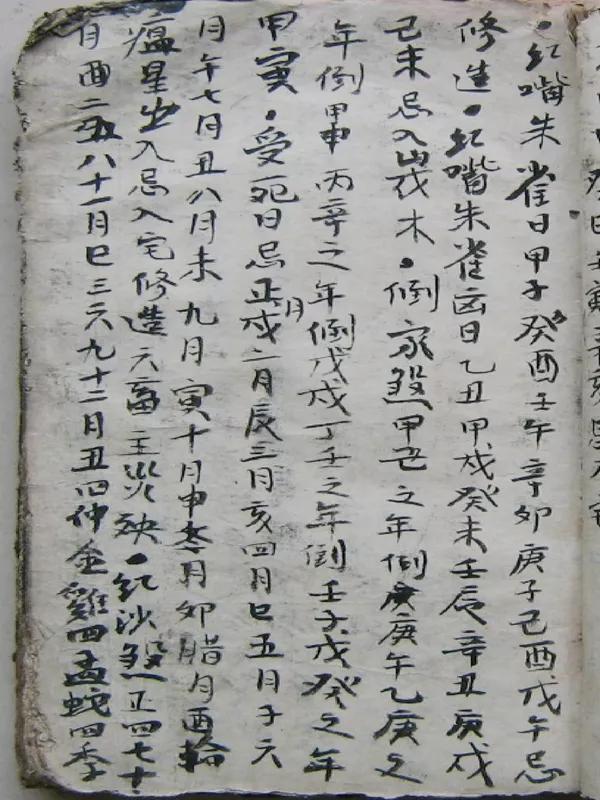 ·紅嘴朱雀日甲子癸酉壬午辛卯庚子己酉戊午忌
修造·紅嘴朱雀凶日乙丑甲戍癸未壬辰辛丑庚戍
己未忌入山伐木·倒家煞甲己之年倒庚午乙庚之
年倒甲申丙辛之年倒戊戍丁壬之年倒壬子戊癸之年
甲寅·受死日忌正月戍二月辰三月亥四月巳五月子六
月午七月丑八月未九月寅十月申冬月卯腊月酉輪
瘟星出入忌入宅修造六畜主災殃·紅沙煞正四七十
月酉二五八十一月巳三六九十二月丑四仲金雞四孟蛇四季